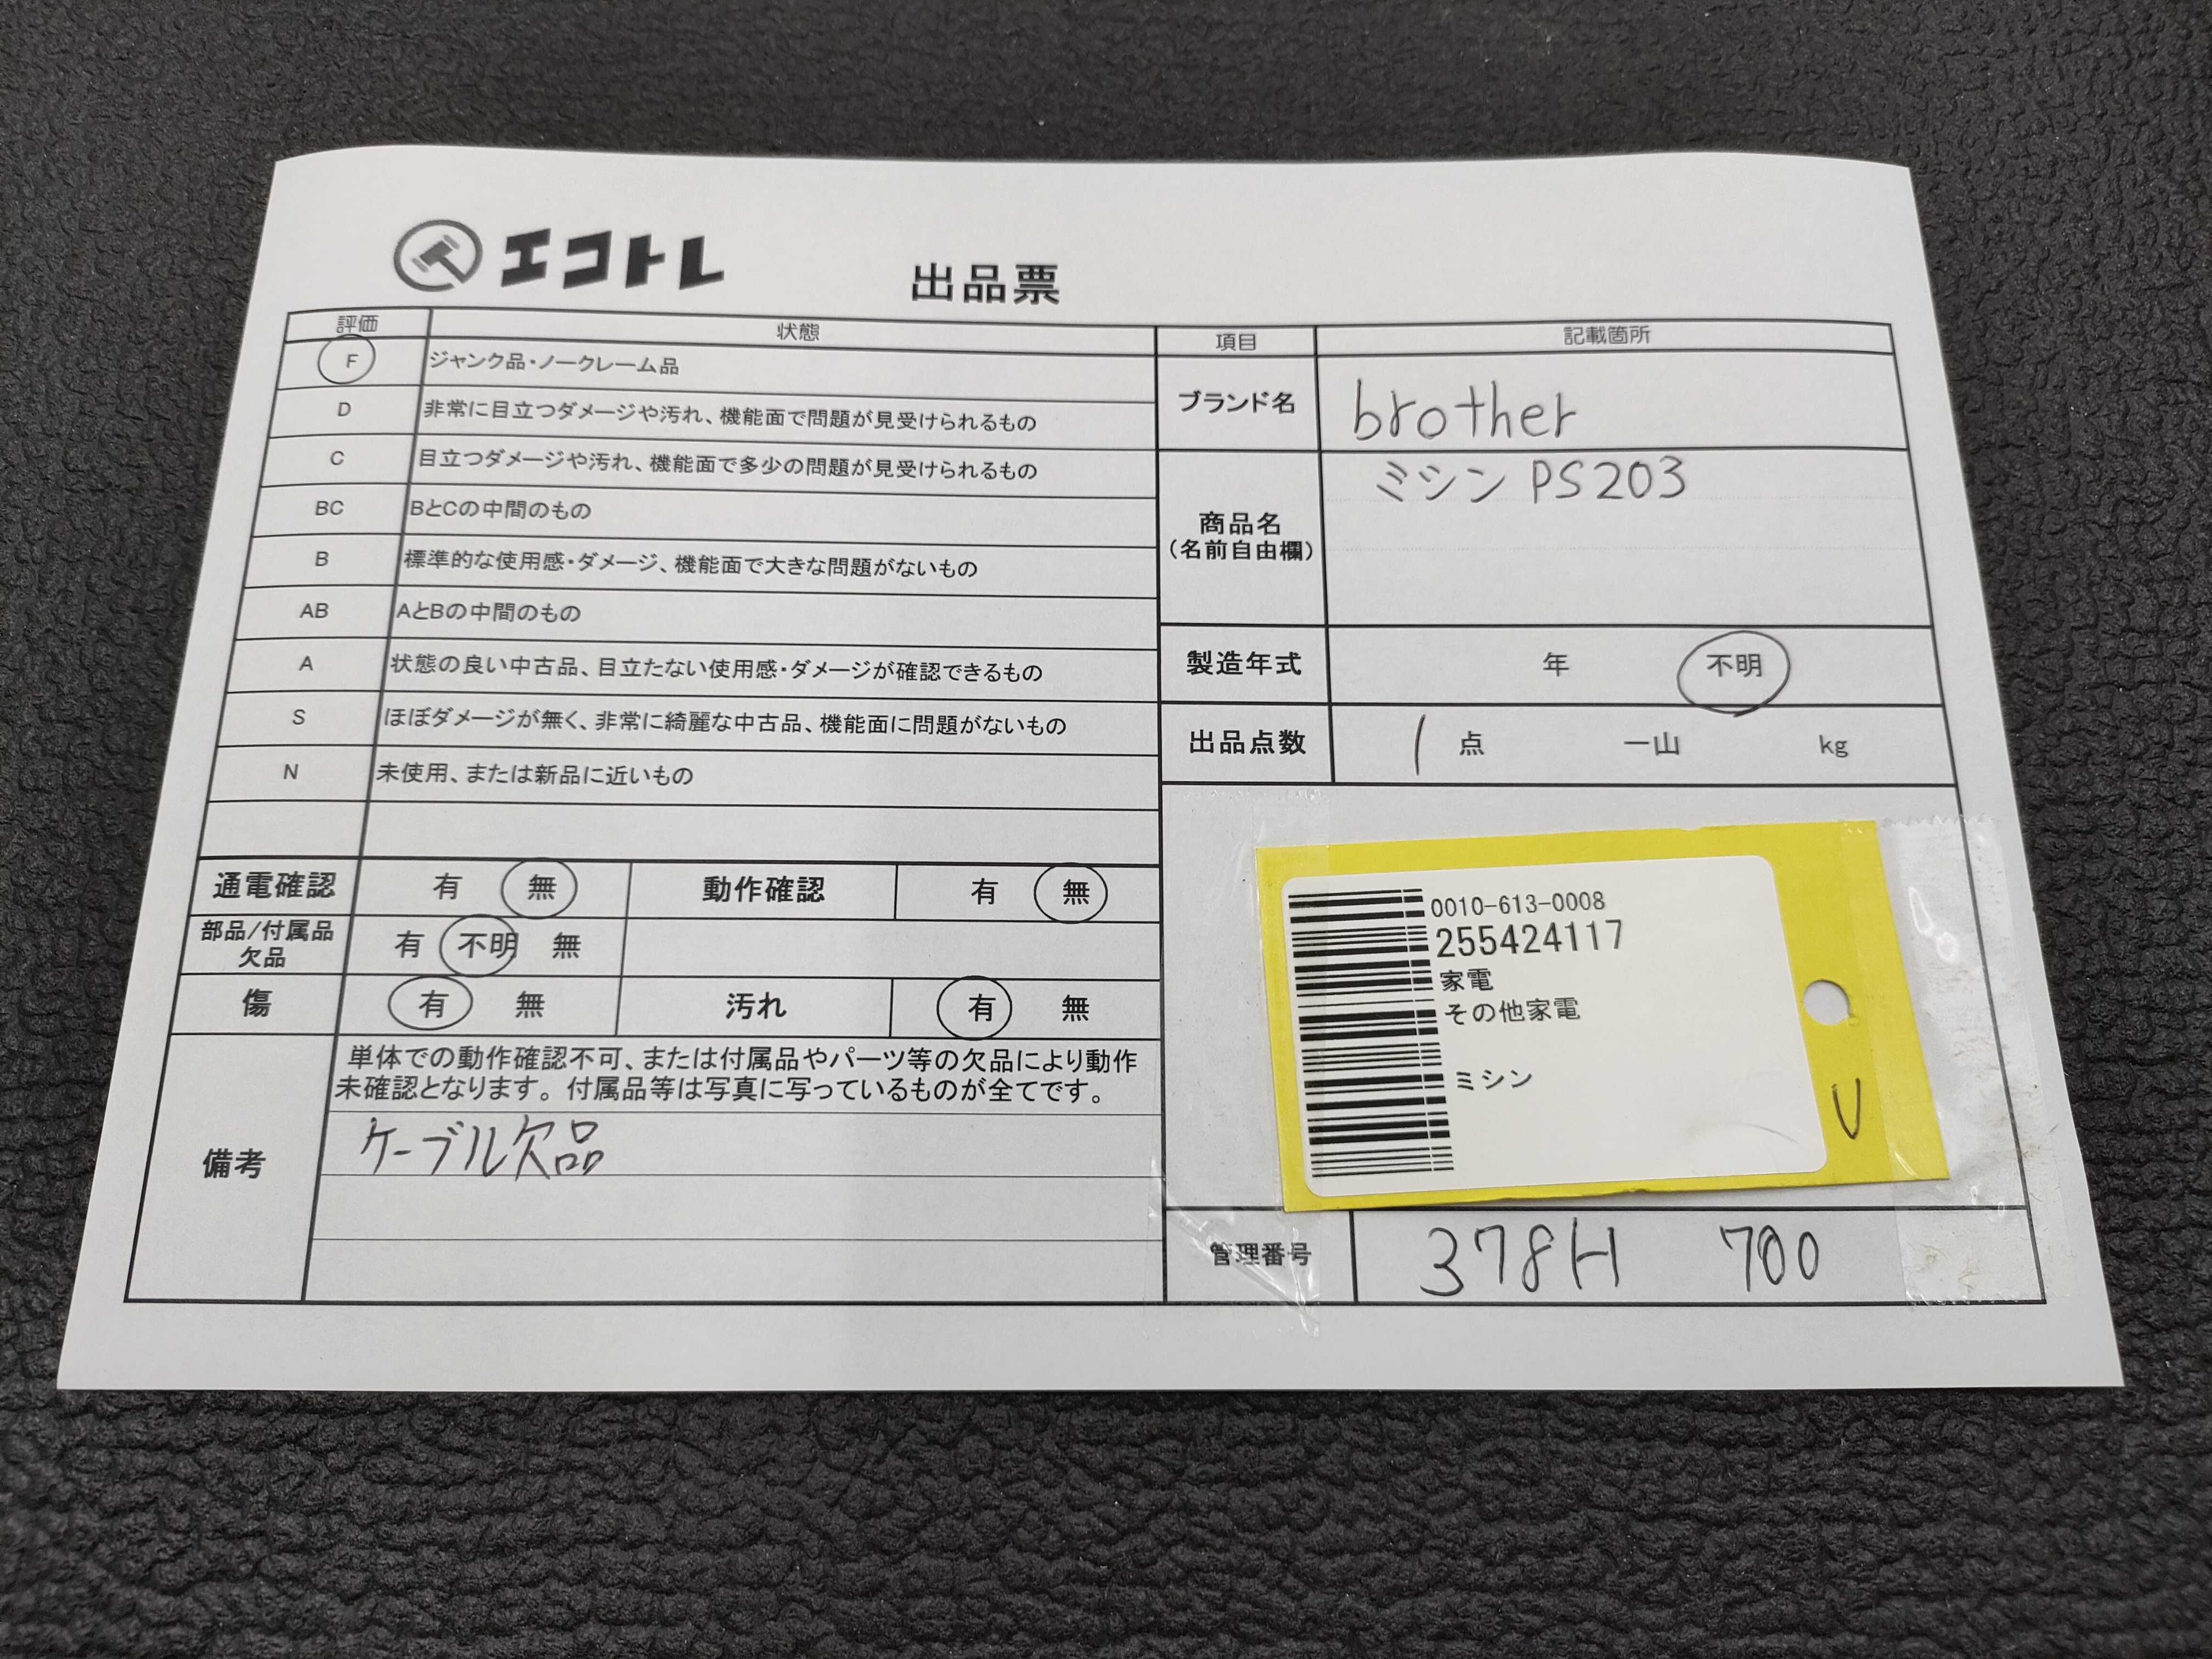 エコトレ
出品票
評価 状態
F ジャンク品・ノークレーム品
D 非常に目立つダメージや汚れ、機能面で問題が見受けられるもの
C 目立つダメージや汚れ、機能面で多少の問題が見受けられるもの
BC BとCの中間のもの
B 標準的な使用感・ダメージ、機能面で大きな問題がないもの
AB AとBの中間のもの
A 状態の良い中古品、目立たない使用感・ダメージが確認できるもの
S ほぼダメージが無く、非常に綺麗な中古品、機能面に問題がないもの
N 未使用、または新品に近いもの
通電確認 有 無 動作確認 有 無
部品/付属品
欠品 有 不明 無
傷 有 無 汚れ 有 無
備考
単体での動作確認不可、または付属品やパーツ等の欠品により動作
未確認となります。付属品等は写真に写っているものが全てです。
ケーブル欠品
項目 記載箇所
ブランド名 brother
商品名
(名前自由欄)
ミシン PS203
製造年式 年 不明
出品点数 1 点 一山 kg
0010-613-0008
255424117
家電
その他家電
ミシン
V
管理番号 378H 700